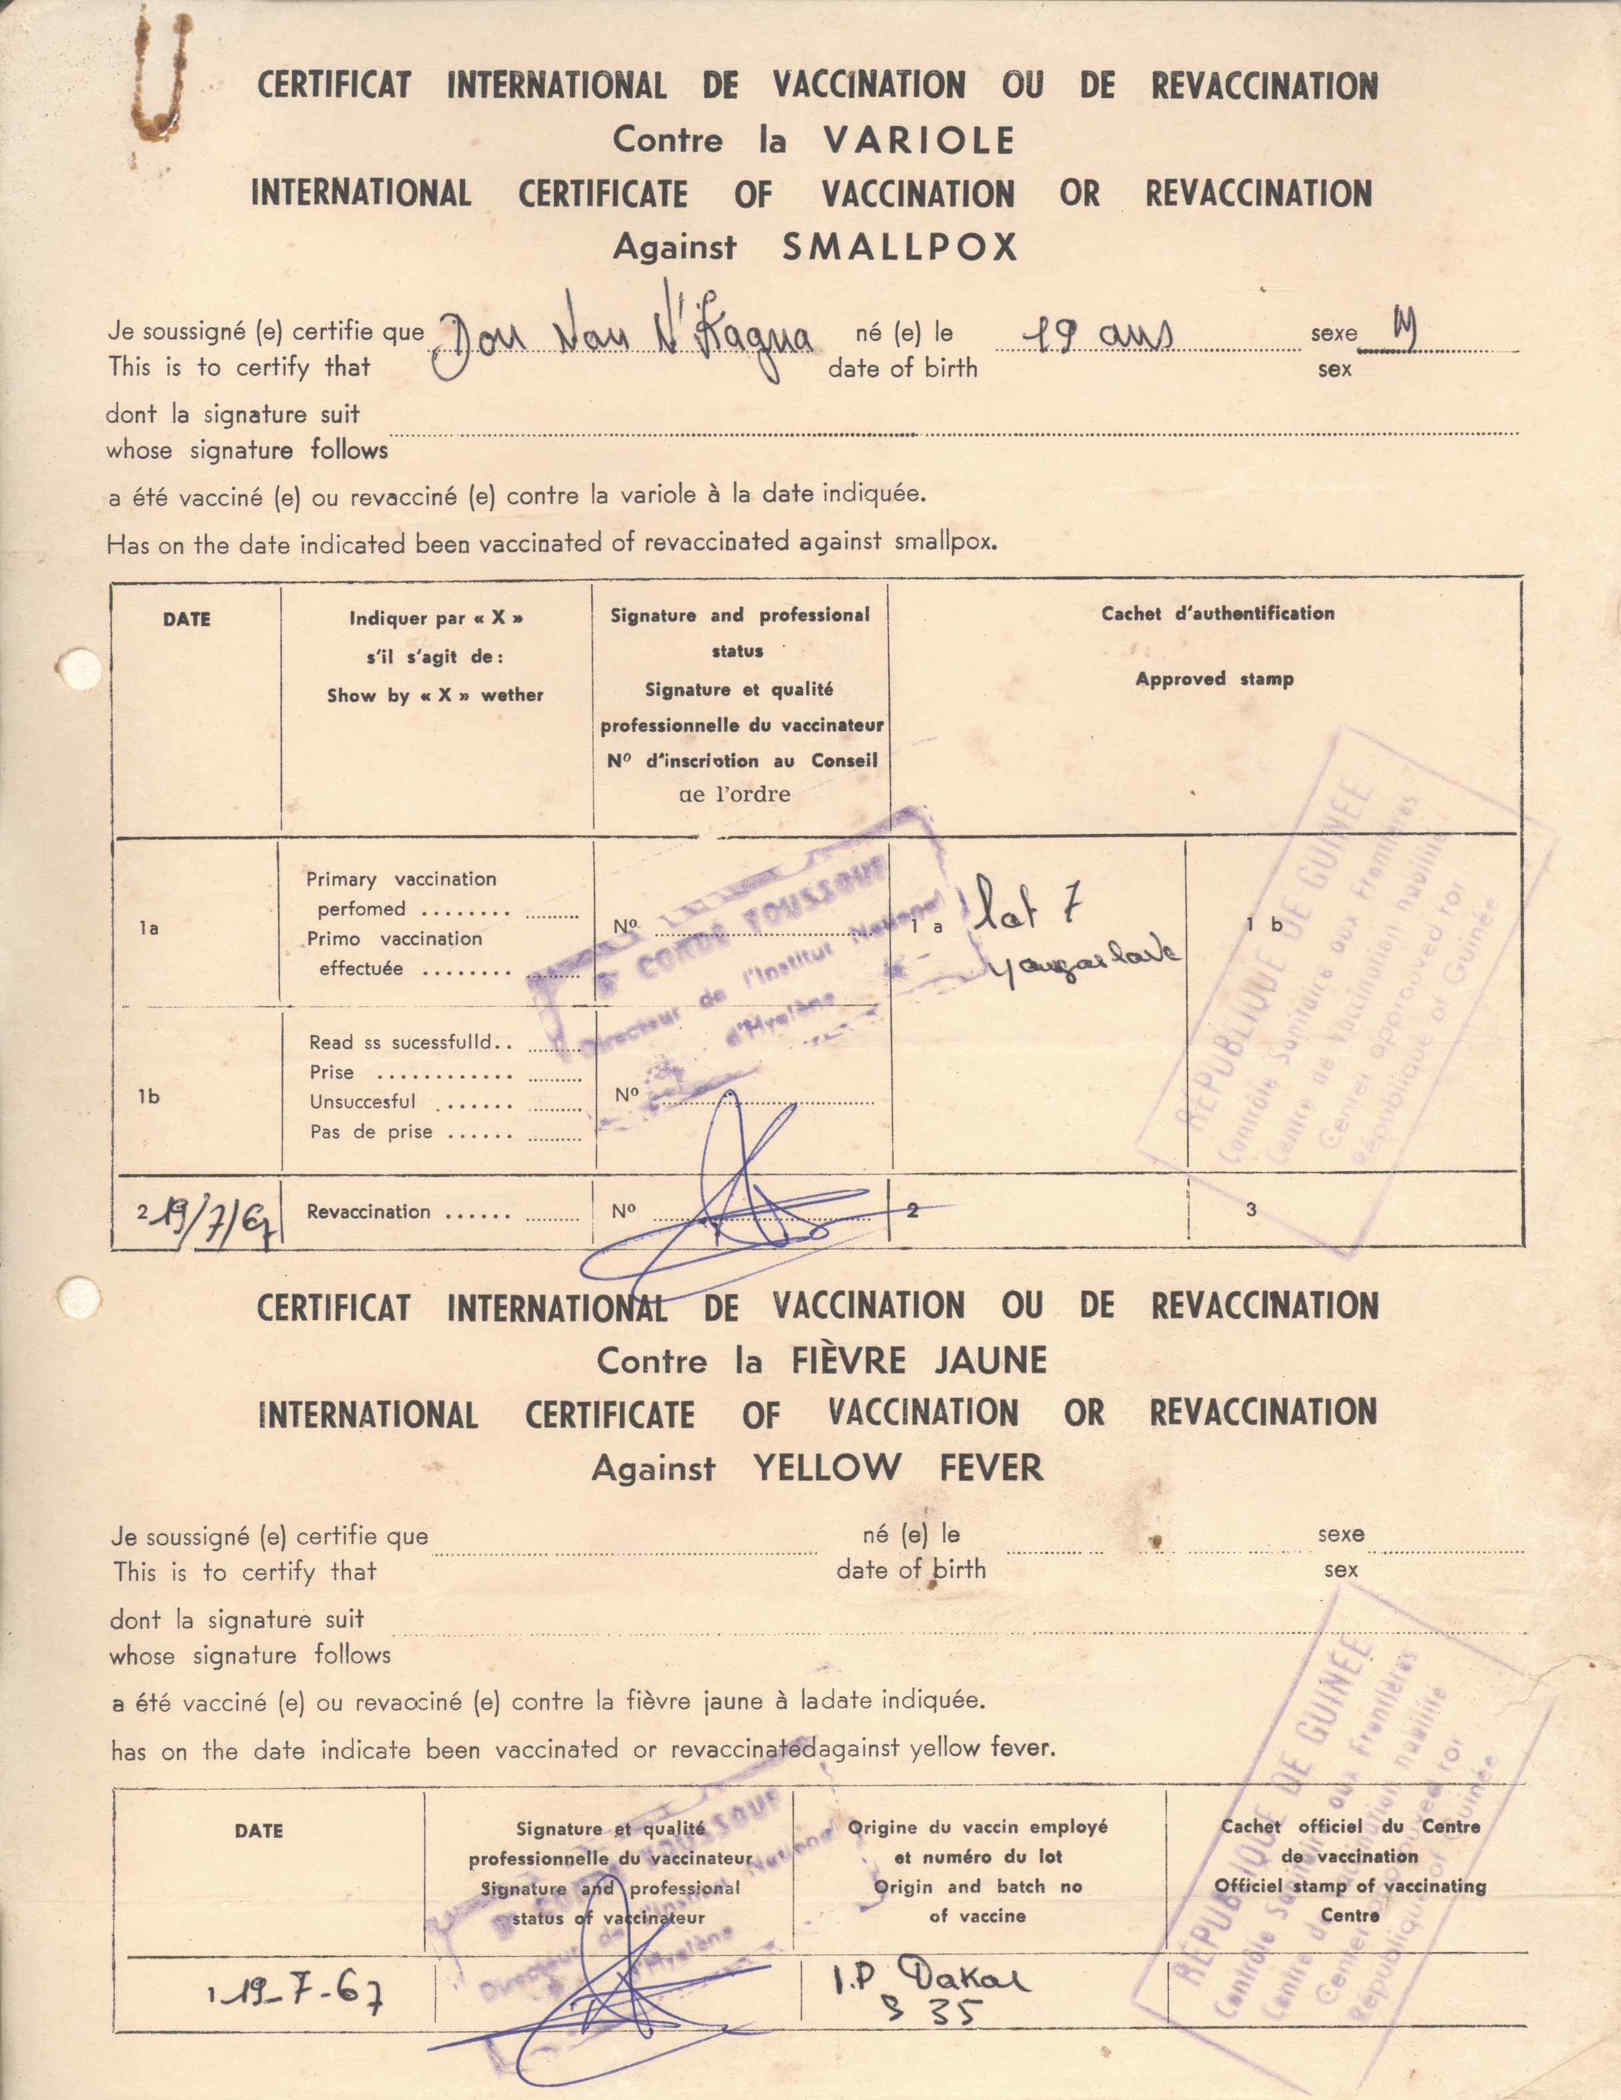 CERTIFICAT INTERNATIONAL DE VACCINATION OU DE REVACCINATION
Contre la VARIOLE
INTERNATIONAL CERTIFICATE OF VACCINATION OR REVACCINATION
Against SMALLPOX
Je soussigné (e) certifie que né (e) le 19 ans sexe M
This is to certify that date of birth sex
dont la signature suit
whose signature follows
a été vacciné (e) ou revacciné (e) contre la variole à la date indiquée.
Has on the date indicated been vaccinated of revaccinated against smallpox.
DATE
Indiquer par « X »
s'il s'agit de :
Show by « X » wether
Signature and professional
status
Signature et qualité
professionnelle du vaccinateur
Nº d'inscription au Conseil
de l'ordre
Cachet d'authentification
Approved stamp
1a
Primary vaccination
perfomed ........
Primo vaccination
effectuée ........
Nº
1 a lot 7
1 b
1b
Read ss sucessfulld..
Prise ............
Unsuccesful .......
Pas de prise ......
Nº
2 19/7/67
Revaccination ......
Nº
2
3
Dr CONDÉ YOUSSOUF
Directeur de l'Institut National
d'Hygiène
REPUBLIQUE DE GUINEE
Contrôle Sanitaire aux Frontières
Centre de Vaccination habilité
Center approuved for
République of Guinée
CERTIFICAT INTERNATIONAL DE VACCINATION OU DE REVACCINATION
Contre la FIÈVRE JAUNE
INTERNATIONAL CERTIFICATE OF VACCINATION OR REVACCINATION
Against YELLOW FEVER
Je soussigné (e) certifie que né (e) le sexe
This is to certify that date of birth sex
dont la signature suit
whose signature follows
a été vacciné (e) ou revaociné (e) contre la fièvre jaune à ladate indiquée.
has on the date indicate been vaccinated or revaccinatedagainst yellow fever.
DATE
Signature et qualité
professionnelle du vaccinateur
Signature and professional
status of vaccinateur
Origine du vaccin employé
et numéro du lot
Origin and batch no
of vaccine
Cachet officiel du Centre
de vaccination
Officiel stamp of vaccinating
Centre
1 19-7-67
I.P Dakar
S 35
Dr CONDÉ YOUSSOUF
Directeur de l'Institut National
d'Hygiène
REPUBLIQUE DE GUINEE
Contrôle Sanitaire aux Frontières
Centre de Vaccination habilité
Center approuved for
République of Guinée